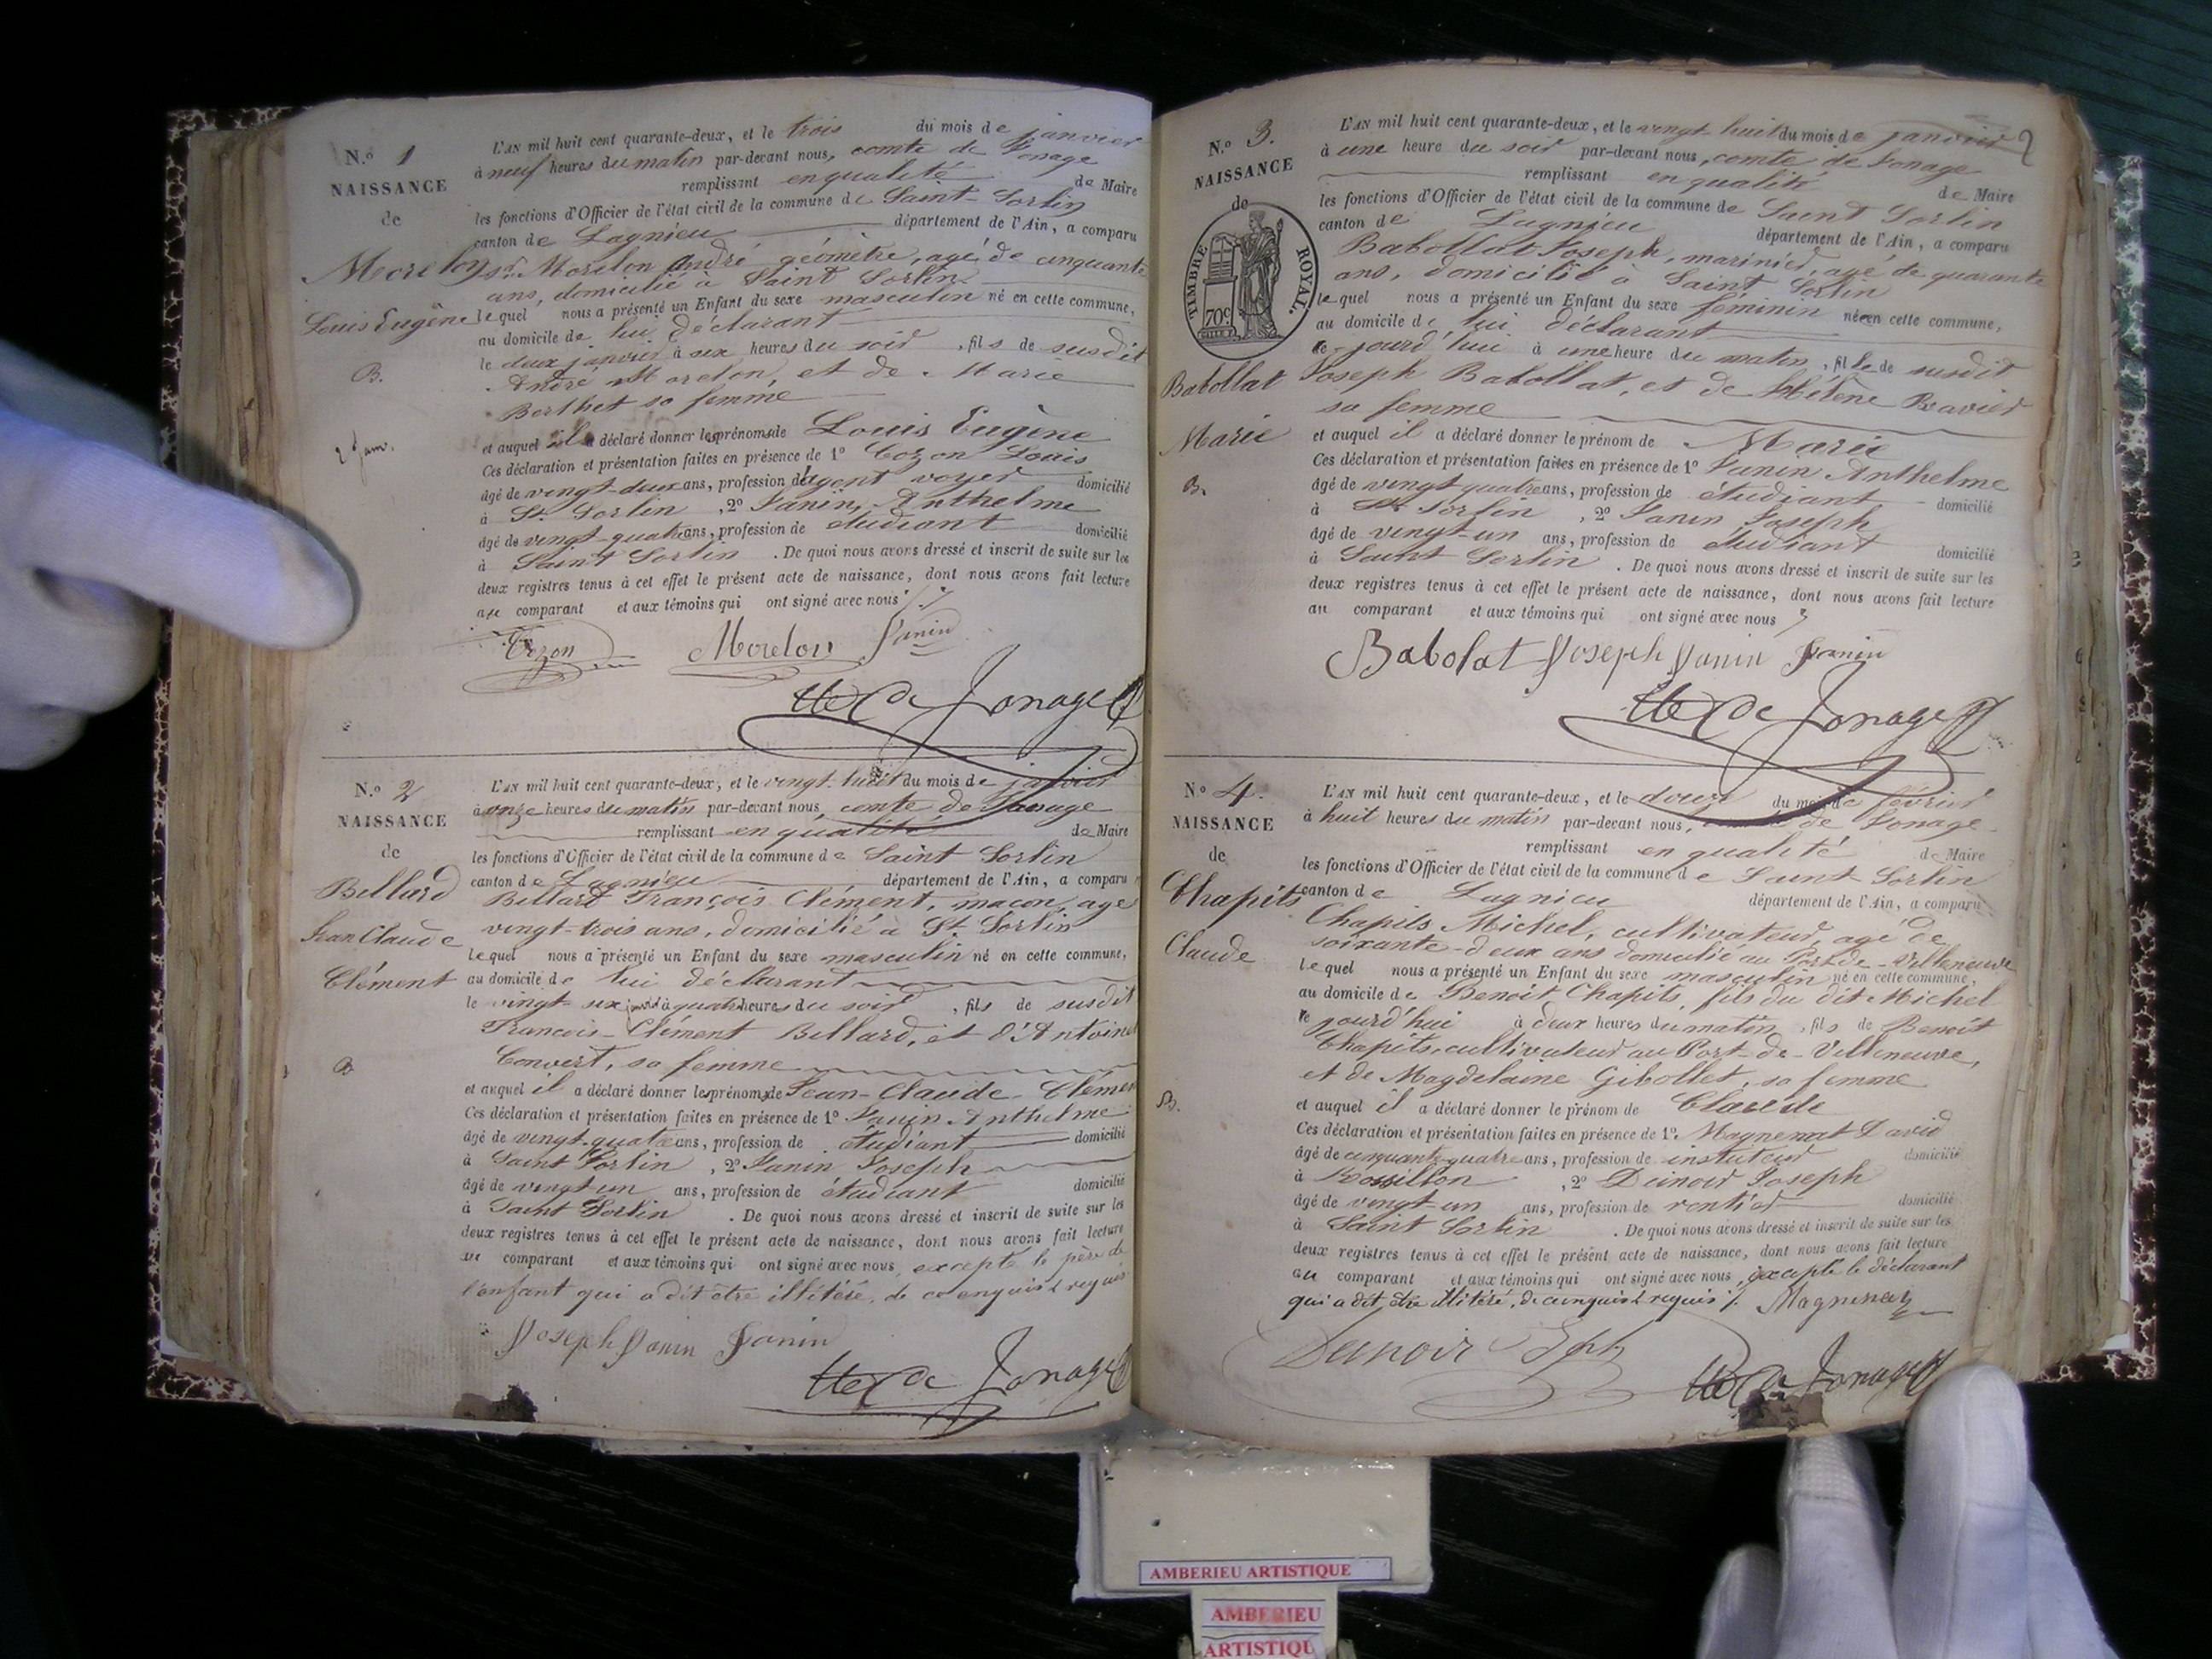 N.º 1
NAISSANCE
de
Morelon
Louis Eugène
B.
2 Janv.
L'AN mil huit cent quarante-deux, et le trois du mois de janvier
à neuf heures du matin par-devant nous, comte de Jonage
remplissant en qualité de Maire
les fonctions d'Officier de l'état civil de la commune de Saint-Sorlin
canton de Lagnieu département de l'Ain, a comparu
sr. Morelon André géomètre, agé de cinquante
ans, domicilié à Saint Sorlin
lequel nous a présenté un Enfant du sexe masculin né en cette commune,
au domicile de lui déclarant
le deux janvier à six heures du soir, fils de susdit
André Morelon, et de Marie
Berthet sa femme
et auquel il a déclaré donner les prénoms de Louis Eugène
Ces déclaration et présentation faites en présence de 1º Cozon Louis
âgé de vingt-deux ans, profession d'agent voyer domicilié
à St. Sorlin, 2º Janin, Anthelme
âgé de vingt-quatre ans, profession de étudiant domicilié
à Saint Sorlin. De quoi nous avons dressé et inscrit de suite sur les
deux registres tenus à cet effet le présent acte de naissance, dont nous avons fait lecture
au comparant et aux témoins qui ont signé avec nous
Cozon Morelon Janin
Cte de Jonage
N.º 2
NAISSANCE
de
Billard
Jean Claude
Clément
B
L'AN mil huit cent quarante-deux, et le vingt-huit du mois de janvier
à onze heures du matin par-devant nous, comte de Jonage
remplissant en qualité de Maire
les fonctions d'Officier de l'état civil de la commune de Saint Sorlin
canton de Lagnieu département de l'Ain, a comparu
Billard François Clément, maçon, agé
vingt-trois ans, domicilié à St. Sorlin
lequel nous a présenté un Enfant du sexe masculin né en cette commune,
au domicile de lui déclarant
le vingt-six janvier à quatre heures du soir, fils de susdit
François-Clément Billard, et d'Antoine
Convert, sa femme
et auquel il a déclaré donner les prénoms de Jean-Claude-Clémen
Ces déclaration et présentation faites en présence de 1º Janin Anthelme
âgé de vingt-quatre ans, profession de étudiant domicilié
à Saint Sorlin, 2º Janin Joseph
âgé de vingt-un ans, profession de étudiant domicilié
à Saint Sorlin. De quoi nous avons dressé et inscrit de suite sur les
deux registres tenus à cet effet le présent acte de naissance, dont nous avons fait lecture
au comparant et aux témoins qui ont signé avec nous, excepté le père de
l'enfant qui a dit être illitéré, de ce enquis & requis
Joseph Janin Janin
Cte de Jonage
N.º 3.
NAISSANCE
de
TIMBRE ROYAL.
70c
Babollat
Marie
B.
L'AN mil huit cent quarante-deux, et le vingt-huit du mois de janvier
à une heure du soir par-devant nous, comte de Jonage
remplissant en qualité de Maire
les fonctions d'Officier de l'état civil de la commune de Saint Sorlin
canton de Lagnieu département de l'Ain, a comparu
Babollat Joseph, marinier, agé de quarante
ans, domicilié à Saint Sorlin
lequel nous a présenté un Enfant du sexe féminin née en cette commune,
au domicile de lui déclarant
ce jourd'hui à une heure du matin, fille de susdit
Joseph Babollat, et de Hélène Ravier
sa femme
et auquel il a déclaré donner le prénom de Marie
Ces déclaration et présentation faites en présence de 1º Janin Anthelme
âgé de vingt quatre ans, profession de étudiant domicilié
à St. Sorlin, 2º Janin Joseph
âgé de vingt-un ans, profession de étudiant domicilié
à Saint Sorlin. De quoi nous avons dressé et inscrit de suite sur les
deux registres tenus à cet effet le présent acte de naissance, dont nous avons fait lecture
au comparant et aux témoins qui ont signé avec nous
Babolat Joseph Janin Janin
Cte de Jonage
N.º 4.
NAISSANCE
de
Chapits
Claude
B.
L'AN mil huit cent quarante-deux, et le douze du mois de février
à huit heures du matin par-devant nous, de Jonage
remplissant en qualité de Maire
les fonctions d'Officier de l'état civil de la commune de Saint Sorlin
canton de Lagnieu département de l'Ain, a comparu
Chapits Michel, cultivateur, agé de
soixante-deux ans domicilié au Port-de-Villeneuve
lequel nous a présenté un Enfant du sexe masculin né en cette commune,
au domicile de Benoît Chapits, fils du dit Michel
ce jourd'hui à deux heures du matin, fils de Benoît
Chapits, cultivateur au Port-de-Villeneuve,
et de Magdelaine Gibollet, sa femme
et auquel il a déclaré donner le prénom de Claude
Ces déclaration et présentation faites en présence de 1º Magnenat David
âgé de cinquante-quatre ans, profession de instituteur domicilié
à , 2º Dunoir Joseph
âgé de vingt-un ans, profession de rentier domicilié
à Saint Sorlin. De quoi nous avons dressé et inscrit de suite sur les
deux registres tenus à cet effet le présent acte de naissance, dont nous avons fait lecture
au comparant et aux témoins qui ont signé avec nous, excepté le déclarant
qui a dit être illitéré, de ce enquis & requis. Magnenat
Dunoir Jph
Cte de Jonage
AMBERIEU ARTISTIQUE
AMBERIEU
ARTISTIQU